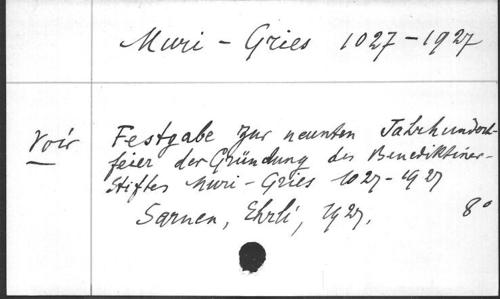 Muri - Gries 1027-1927
Voir Festgabe zur neunten Jahrhundert-
feier der Gründung des Benediktiner-
Stiftes Muri-Gries 1027-1927
Sarnen, Ehrli, 1927. 8°